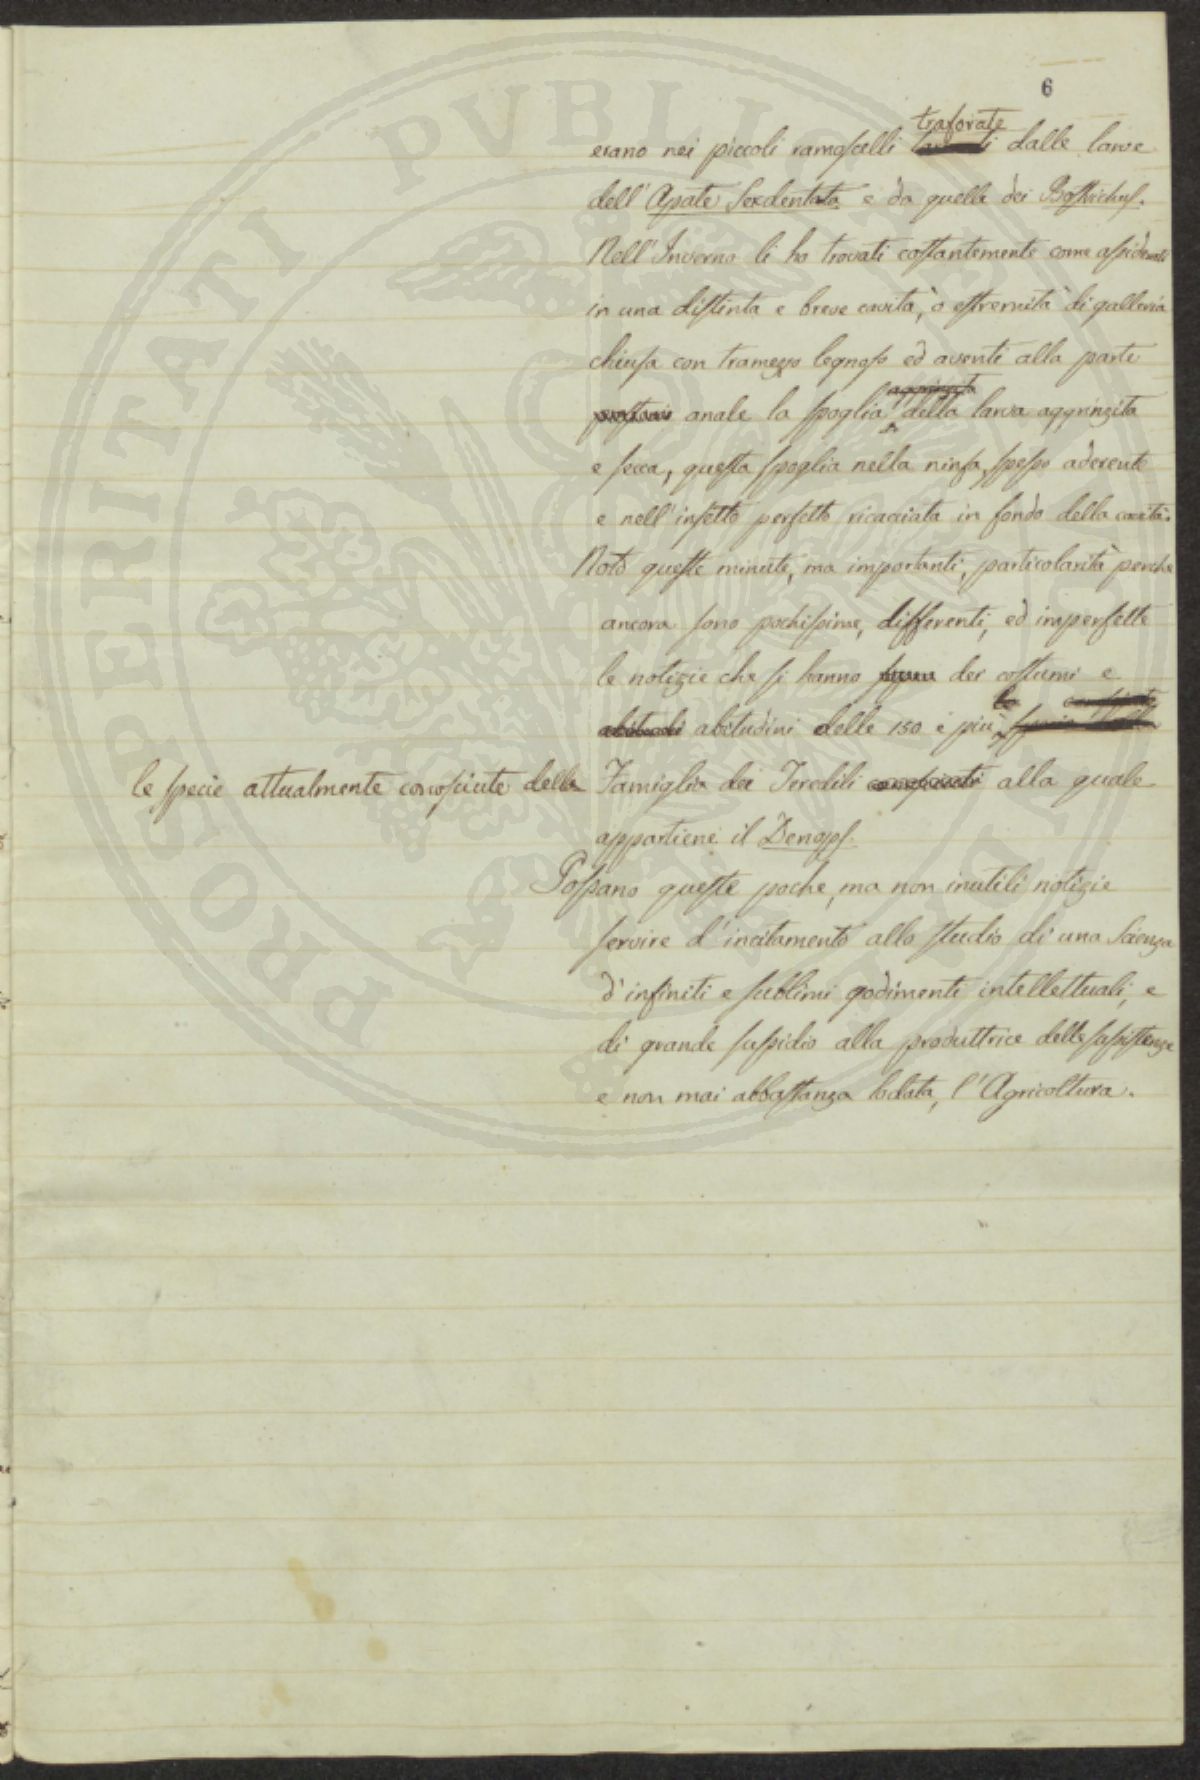 6
traforate
erano nei piccoli ramoscelli dalle larve
dell'Apate Sexdentata e da quelle dei Bostrichus.
Nell'Inverno li ho trovati costantemente come assiderati
in una distinta e breve cavità, o estremità di galleria
chiusa con tramezzo legnoso ed aventi alla parte
aggrinzita
anale la spoglia della larva aggrinzita
e secca, questa spoglia nella ninfa, spesso aderente
e nell'insetto perfetto ricacciata in fondo della cavità.
Noto queste minute, ma importanti, particolarità perchè
ancora sono pochissime, differenti, ed imperfette
le notizie che si hanno dei costumi e
abitudini delle 150 e più
le specie attualmente conosciute della Famiglia dei Teredili conosciuti alla quale
appartiene il Denops.
Possano queste poche, ma non inutili notizie
servire d'incitamento allo studio di una Scienza
d'infiniti e sublimi godimenti intellettuali, e
di grande sussidio alla produttrice delle sussistenze
e non mai abbastanza lodata, l'Agricoltura.
PROSPERITATI PVBLICAE